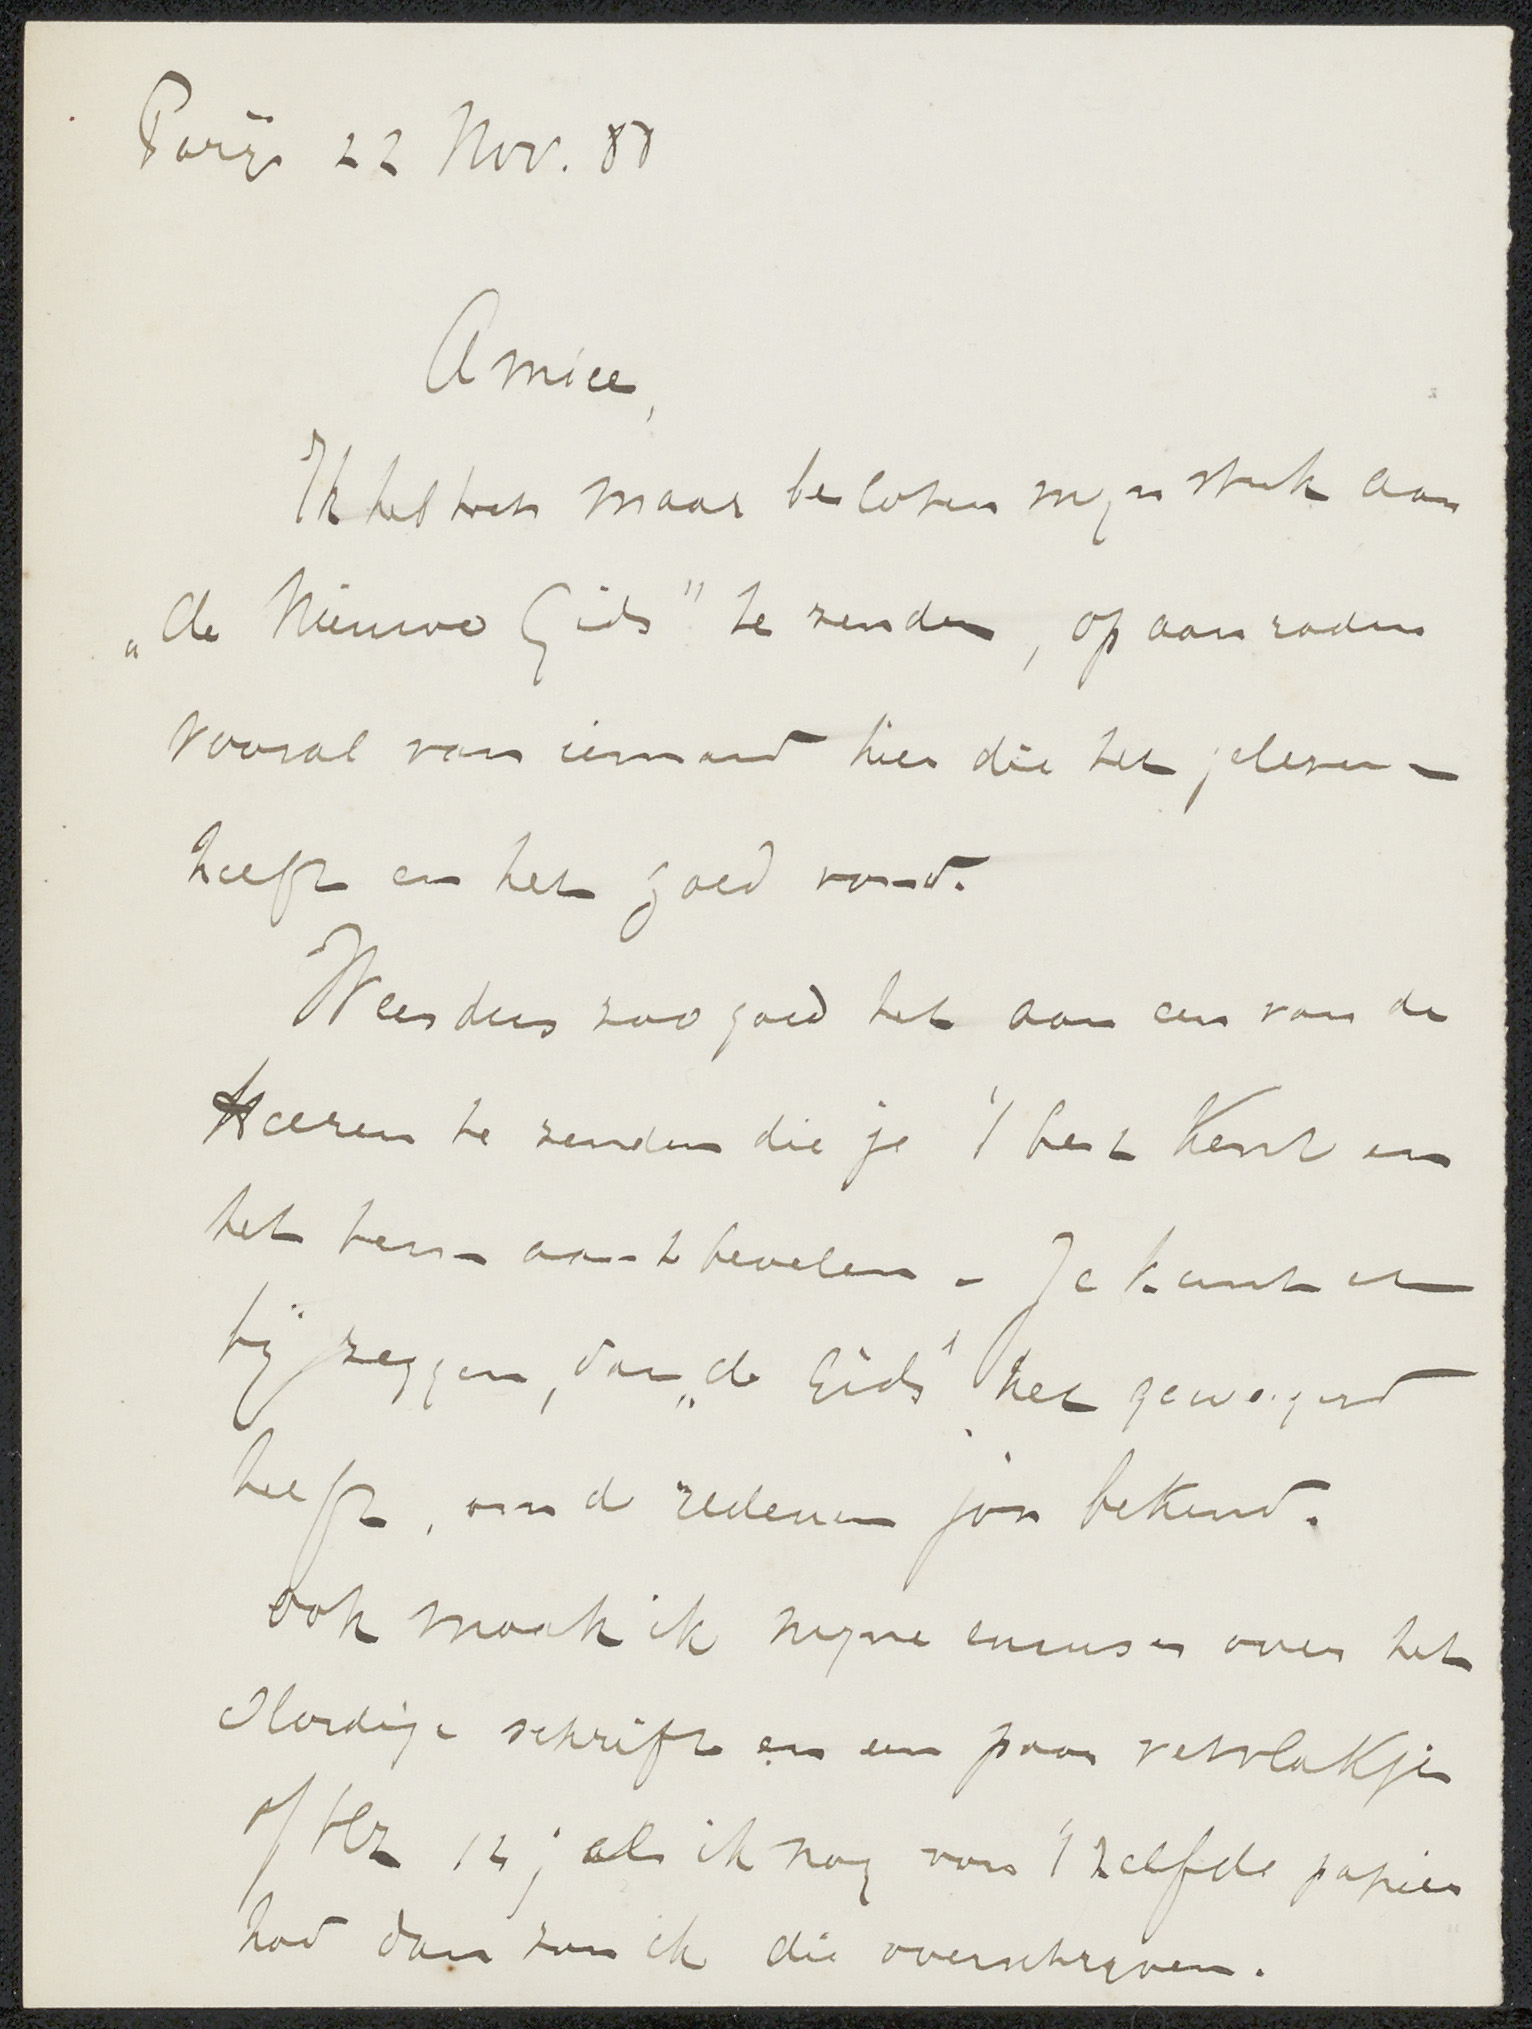 Parijs 22 Nov. 88
Amice,
Ik heb toch maar besloten mijn stuk aan
„de Nieuwe Gids" te zenden, op aanraden
vooral van iemand hier die het gelezen
heeft en het goed vond.
Wees dus zoo goed het aan een van de
heeren te zenden die je 't best kent en
het hem aan te bevelen. Je kunt er
bij zeggen, dat „de Gids" het geweigerd
heeft, om de redenen jou bekend.
Ook maak ik mijne excuses over het
slordige schrift en een paar vetvlakjes
of blz 12; als ik nog van 't zelfde papier
had dan zou ik die overschrijven.